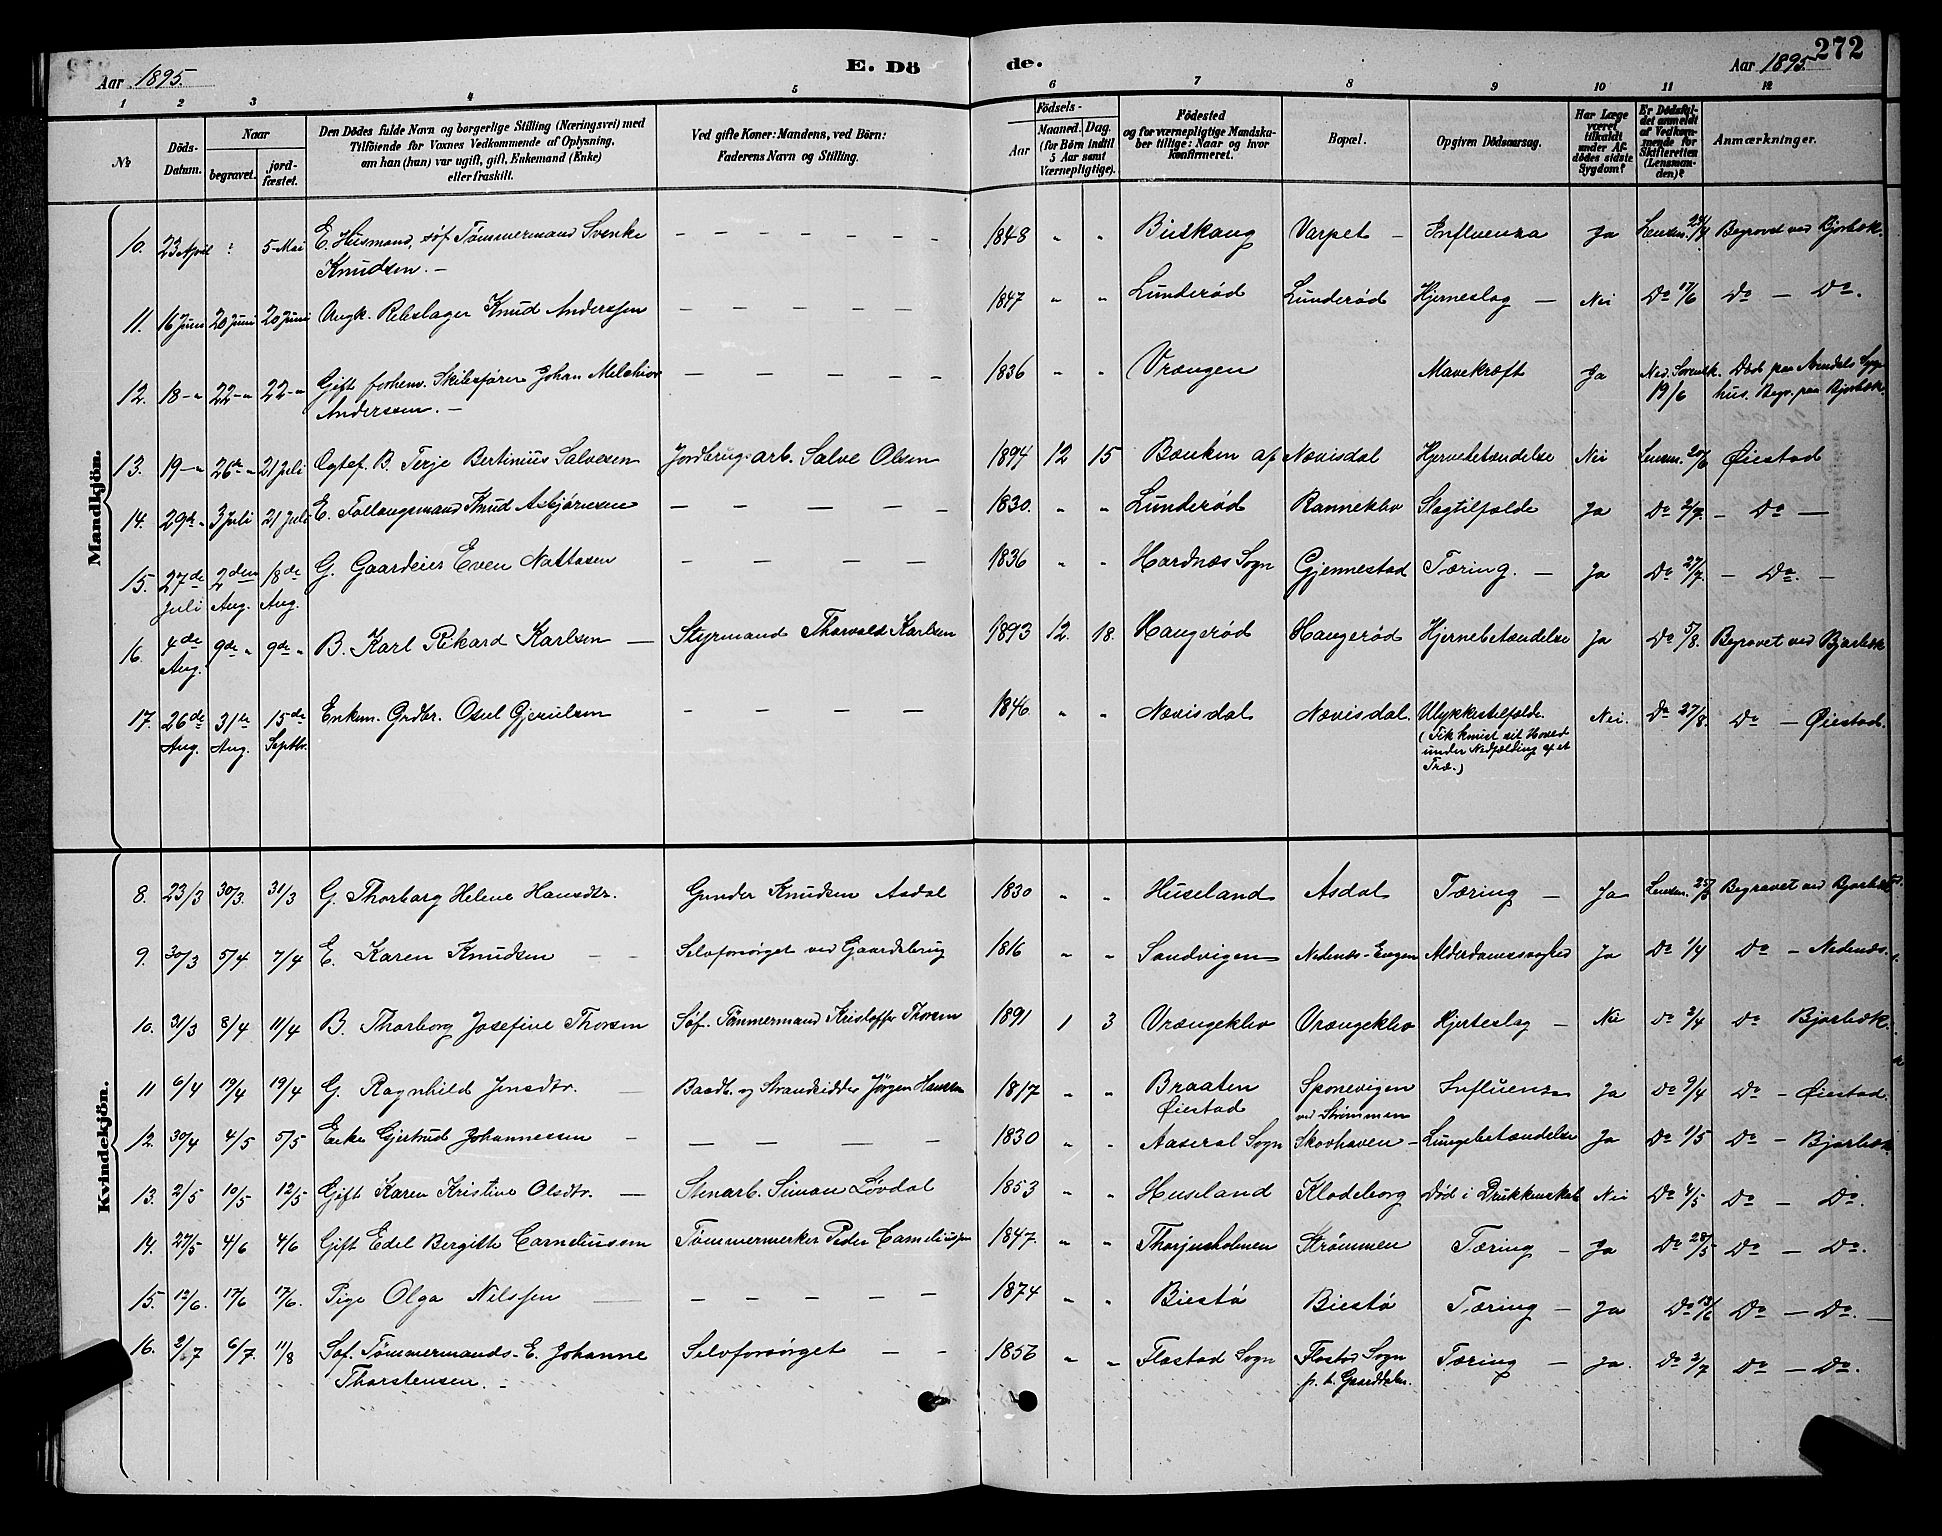 Aar 1895. E. Dö de. Aar 1895. 272
1 2 3 4 5 6 7 8 9 10 11 12
No Döds-Datum. Naar begravet. jord-fæstet. Den Dödes fulde Navn og borgerlige Stilling (Næringsvei) med Tilföiende for Voxnes Vedkommende af Oplysning, om han (hun) var ugift, gift, Enkemand (Enke) eller fraskilt. Ved gifte Koner: Mandens, ved Börn: Faderens Navn og Stilling. Födsels- Aar Maaned. Dag. (for Börn indtil 5 Aar samt Værnepligtige). Födested og for værnepligtige Mandskaber tillige: Naar og hvor konfirmeret. Bopæl. Opgiven Dödsaarsag. Har Læge været tilkaldt under Afdödes sidste Sygdom? Er Dödsfaldet anmeldt af Vedkommende for Skifteretten (Lensmanden)? Anmærkninger.
Mandkjön.
10. 23 April : 5 Mai E. Husmand, söf. Tømmermand Svenke Knudsen. – – – – – – – 1848 " " Buskaug Varpet – Influenza Ja Lensm. 24/4 Begravet ved Bjorbæk.
11. 16 Juni 20 Juni 20 Juni Ungk. Rebslager Knud Anderssen – – – – – 1847 " " Lunderød Lunderød Hjerneslag – Nei Do 17/6 Do – Do.
12. 18 – " 22 – " 22 – " Gift forhenv. Skibsfører Johan Melchior Andersen. – – – – – – 1836 " " Vrængen Mavekræft Ja Ned. Sorensk. 19/6 Død paa Arendals Sygehus. Begr. paa Bjorbæk.
13. 19 – " 26de " 21 Juli Ogtef. B. Terje Bertinius Salvesen Jordbrug.arb. Salve Olsen 1894 12 15 Bænken af Nævisdal Hjernebetændelse Nei Lensm. 20/6 Øiestad
14. 29de " 3 Juli 21 Juli E. Follaugsmand Knud Asbjørnsen – – – – – 1830. " " Lunderød Ranneklev Slagtilfælde Ja Do 2/7. – Do –
15. 27de Juli 2den Aug. 18de Aug. G. Gaardeier Even Nattasen – – – – 1836 " " Hardnæs Sogn Gjennestad Tæring. – Ja Do 27/7 – Do. –
16. 4de Aug. 9de " 9de " B. Karl Rikard Karlsen – Styrmand Thorvald Karlsen 1893 12. 18. Haugerød Haugerød Hjernebetændelse Ja Do 5/8. Begravet ved Bjorbæk
17. 26de Aug. 31te Aug. 15de Septbr. Enkem. Grdbr. Osuf Gjerulsen – – – – – 1846. " " Nævisdal Nævisdal. Ulykkestilfælde. (Fik knust sit Hoved under Nedfælding af et Træ.) Nei. Do 27/8. Do – Øiestad.
Kvindekjön.
8. 23/3 30/3. 31/3 G. Thorborg Helene Hansdtr. Gunder Knudsen Asdal 1830 " " Huseland Asdal Tæring – Ja Lensm. 25/3 Begravet ved Bjorbæk
9. 30/3 5/4 7/4 E. Karen Knudsen – – Selvforsørget ved Gaardsbrug 1816 " " Sandvigen Nedenæs-Engen Alderdomssvaghed Ja Do 1/4 Do – Nedenæs.
10. 31/3 8/4 11/4 B. Thorborg Josefine Thorsen Söf. Tømmermand Kristoffer Thorsen 1891 1 3 Vrængeklev Vrængeklev Hjerteslag – Nei Do 2/4 Do Bjorbæk.
11 6/4 19/4 19/4 G. Ragnhild Jensdtr. – Baadb. og Strandsidder Jørgen Hansen 1817 " " Braaten Øiestad Sponevigen ved Strømmen Influenza Ja Do 9/4 Do – Øiestad.
12. 30/4 4/5 5/5 Enke Gjertrud Johannessen – – – – – 1830 " " Aaseral Sogn Skovhaven – Lungebetændelse Ja Do 1/5 Do – Bjorbæk
13. 2/5 10/5 12/5 Gift Karen Kristine Olsdtr. – Stenarb. Simon Løvdal 1853 " " Huseland Klodeborg Død i Drukkenskab Nei Do 4/5 Do – Do.
14. 27/5 4/6 4/6 Gift Edel Bergitte Corneliussen Tømmermerker Peder Corneliussen 1847. " " Thorjusholmen Strømmen Tæring – Ja Do 28/5 Do – Do.
15. 12/6. 17/6 17/6. Pige Olga Nilssen – – – – – – 1874 " " Biestø Biestø Tæring – Ja Do 13/6 Do – Do.
16. 2/7 6/7. 11/8 Söf. Tømmermands- E. Johanne Thorstensen. – Selvforsørget – – 1856 " " Flostad Sogn Flostad Sogn p. t. Gaarddalen. Tæring – Ja. Do 3/7 Do – Do.